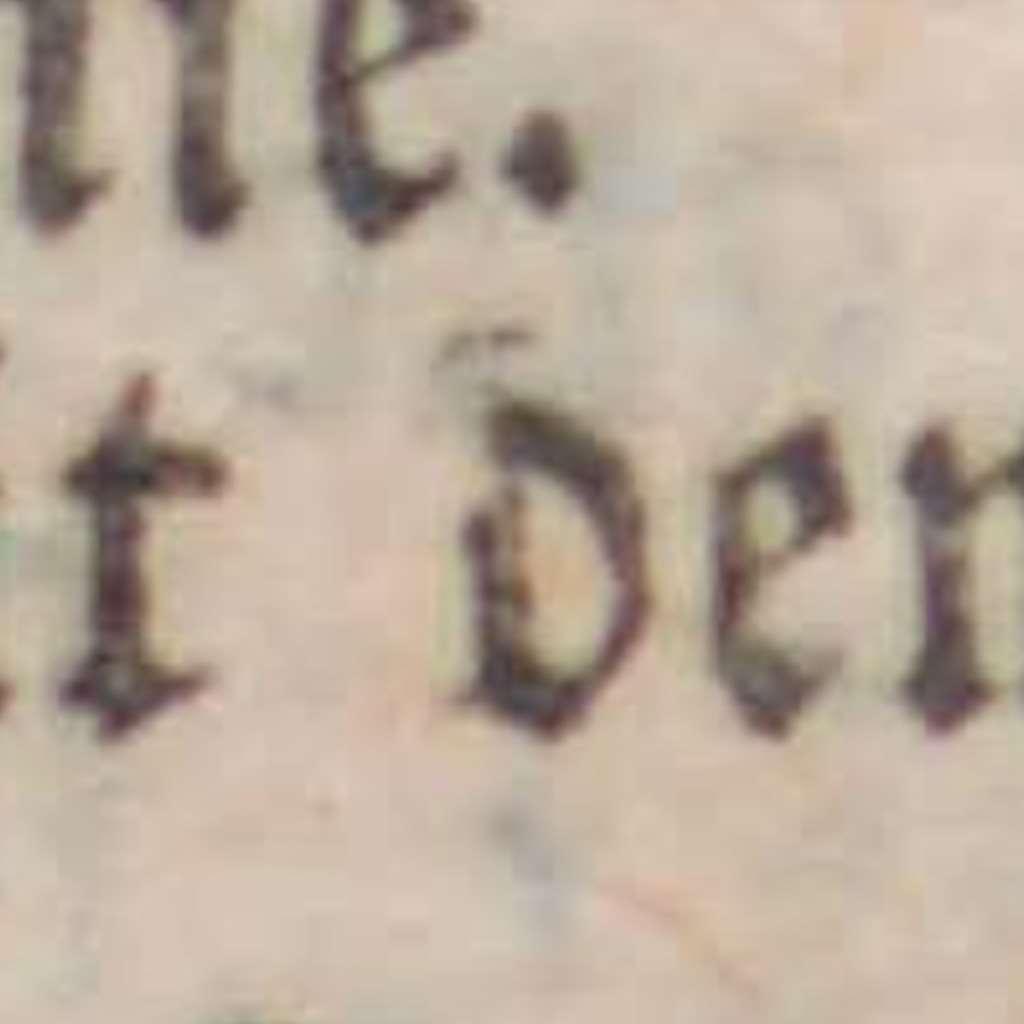 ne.
t den